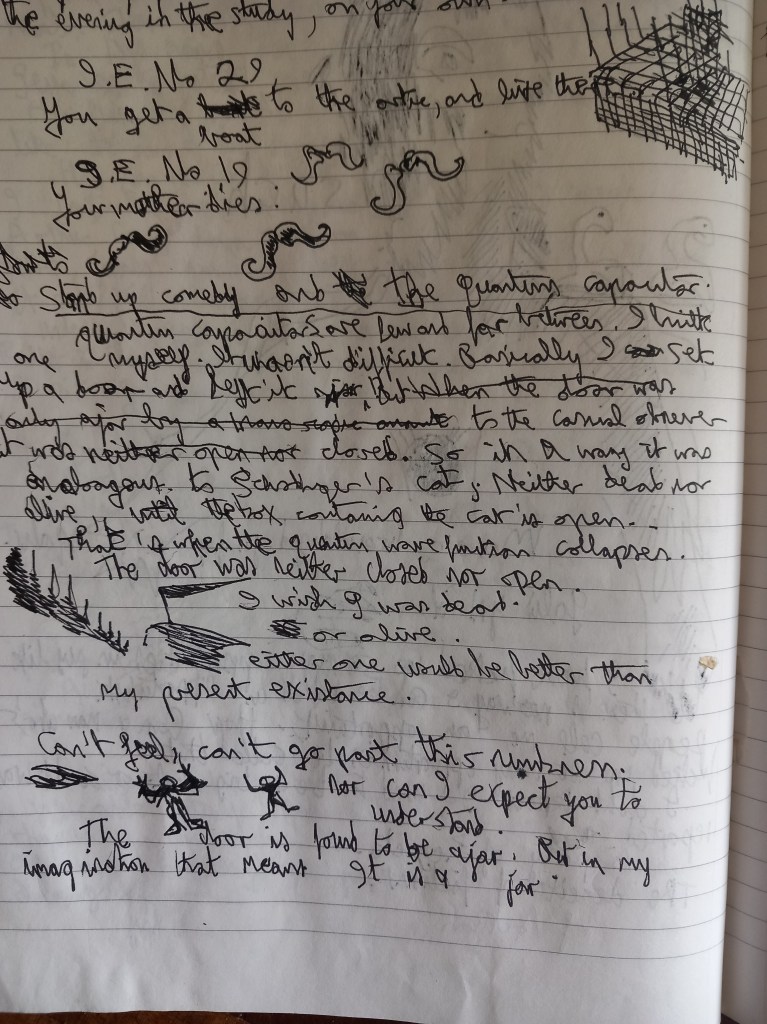 the evening in the study, on your own
I.E. No 29
You get a to the artic, and live there
boat
I.E. No 19
Your mother dies:
to
Stand up comedy and the quantum capacitor.
quantum capacitors are few and far between. I built
one myself. It wasn't difficult. Basically I set
up a door and left it ajar. But when the door was
only ajar by a to the casual observer
it was neither open nor closed. So in a way it was
analogous to Schrodinger's cat; Neither dead nor
alive, until the box containing the cat is open...
That is when the quantum wave function collapses.
The door was neither closed nor open.
I wish I was dead.
or alive.
either one would be better than
my present existance.
Can't feel, can't go past this numbness.
nor can I expect you to
understand.
The door is found to be ajar. But in my
imagination that means It is a jar